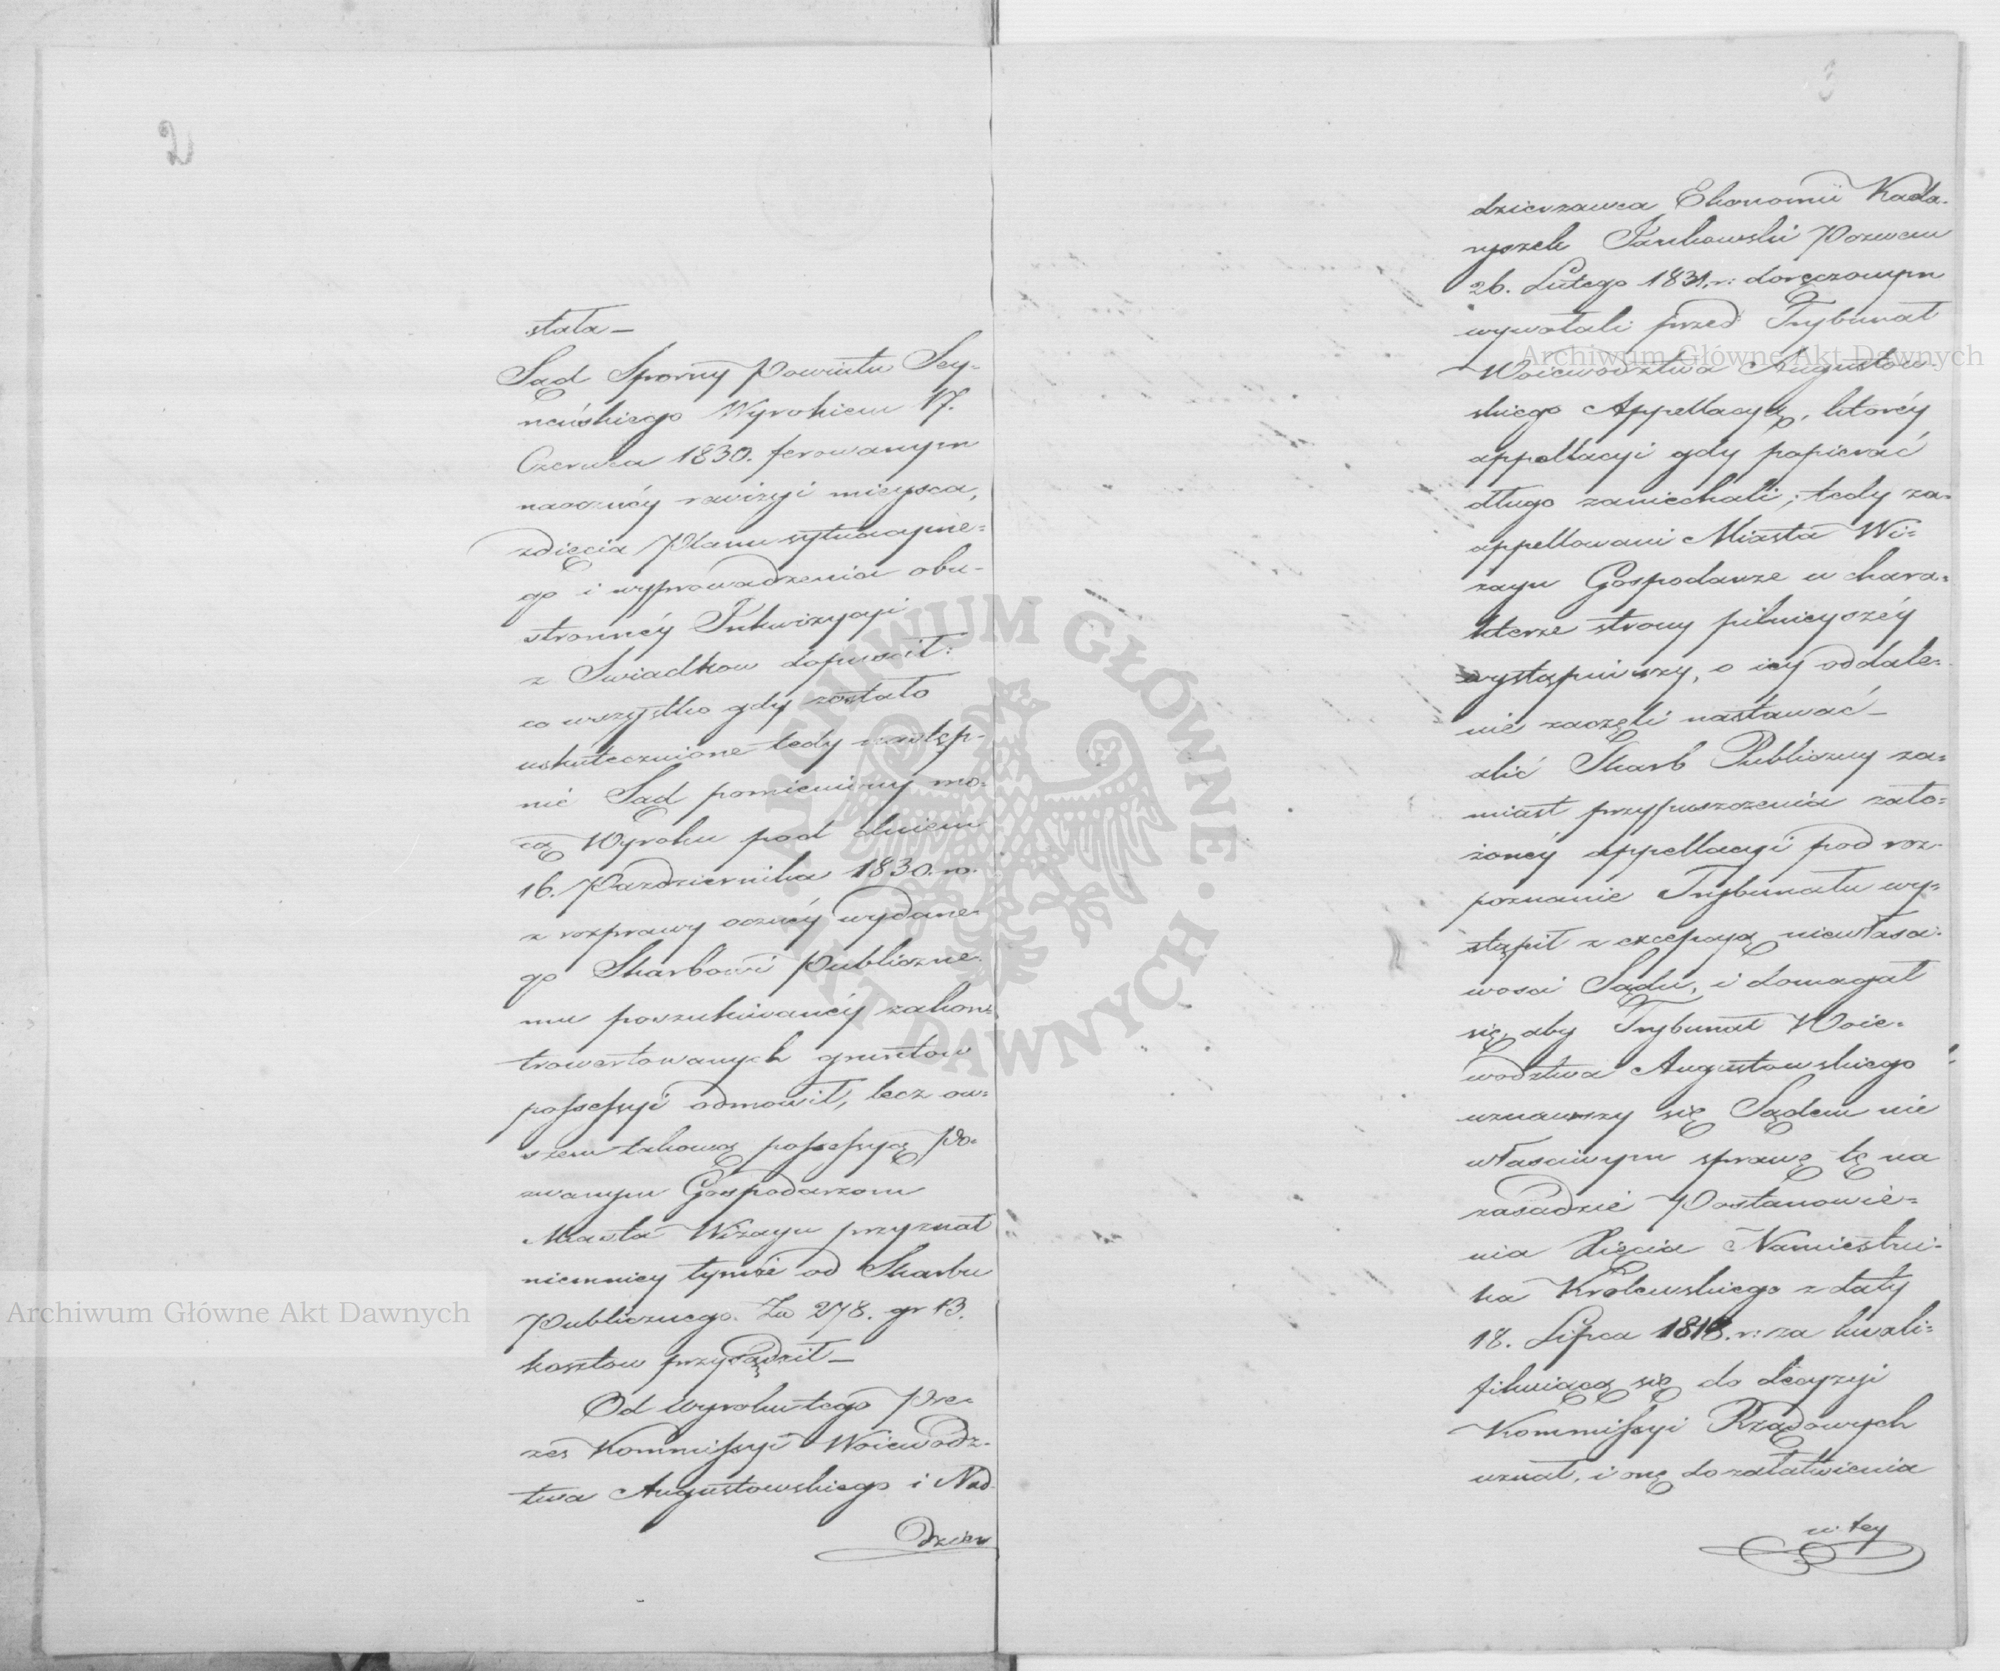 2
stała —
Sąd Sporny Powiatu Sey-
neńskiego Wyrokiem 17.
Czerwca 1830. ferowanym
naoczney rewizyi mieysca,
zdięcia Planu sytuacyine-
go i wyprowadzenia obu-
stronnéy Inkwizycyi
z Swiadkow dopuscił:
co wszystko gdy zostało
uskutecznione tedy następ-
nie Sąd pomieniony mo-
cą Wyroku pod dniem
16. Pazdziernika 1830. ro.
z rozprawy oczney wydane-
go Skarbowi Publiczne-
mu poszukiwanéy zakon-
trowertowanych gruntow
possessyi odmowił, lecz ow-
szem takową possessyą Po-
zwanym Gospodarzom
Miasta Wizayn przyznał
niemniey tymże od Skarbu
Publicznego Zu 278. gr 13.
kosztow przysądził —
Od Wyroku tego Pre-
zes Kommissyi Woiewodz-
twa Augustowskiego i Nad
Dzier
3
dzierzawca Ekonomii Kada-
ryszek Jankowski Pozwem
26. Lutego 1831. r: doręczonym
wywołali przed Trybunał
Woiewodztwa Augustow-
skiego Appellacyą, ktoréy
appellacyi gdy popierać
długo zaniechali; tedy za-
appellowani Miasta Wi-
zayn Gospodarze w chara-
kterze strony pilnieyszéy
wystąpiwszy, o iey oddale-
nie zaczęli nastawać —
alić Skarb Publiczny za-
miast przypuszczenia zało-
żonéy appellacyi pod roz-
poznanie Trybunału wy-
stąpił z excepcyą niewłasci-
wosci Sądu, i domagał
się, aby Trybunał Woie-
wodztwa Augustowskiego
uznawszy się Sądem nie
własciwym sprawę tę na
zasadzie Postanowie-
nia Xięcia Namiestni-
ka Krolewskiego z daty
18. Lipca 1818. r: za kwali-
fikuiącą się do decyzyi
Kommissyi Rządowych
uznał, i onę do załatwienia
w tey
Archiwum Główne Akt Dawnych
Archiwum Główne Akt Dawnych
ARCHIWUM GŁÓWNE · AKT DAWNYCH ·